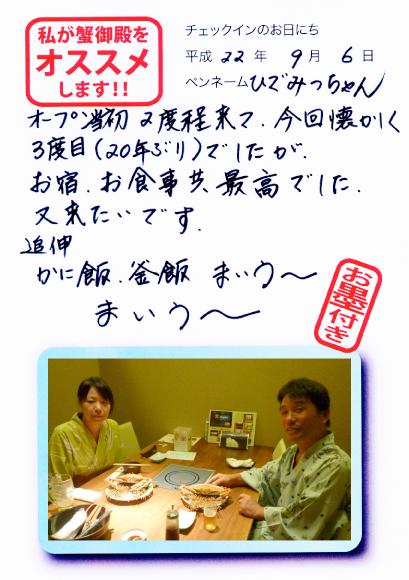 私が蟹御殿を
オススメ
します!!
チェックインのお日にち
平成 22 年 9 月 6 日
ペンネーム ひでみっちゃん
オープン当初 2度程来て、今回懐かしく
3度目(20年ぶり)でしたが、
お宿、お食事共、最高でした.
又来たいです.
追伸
かに飯、釜飯 まいう〜
まいう〜
お墨付き